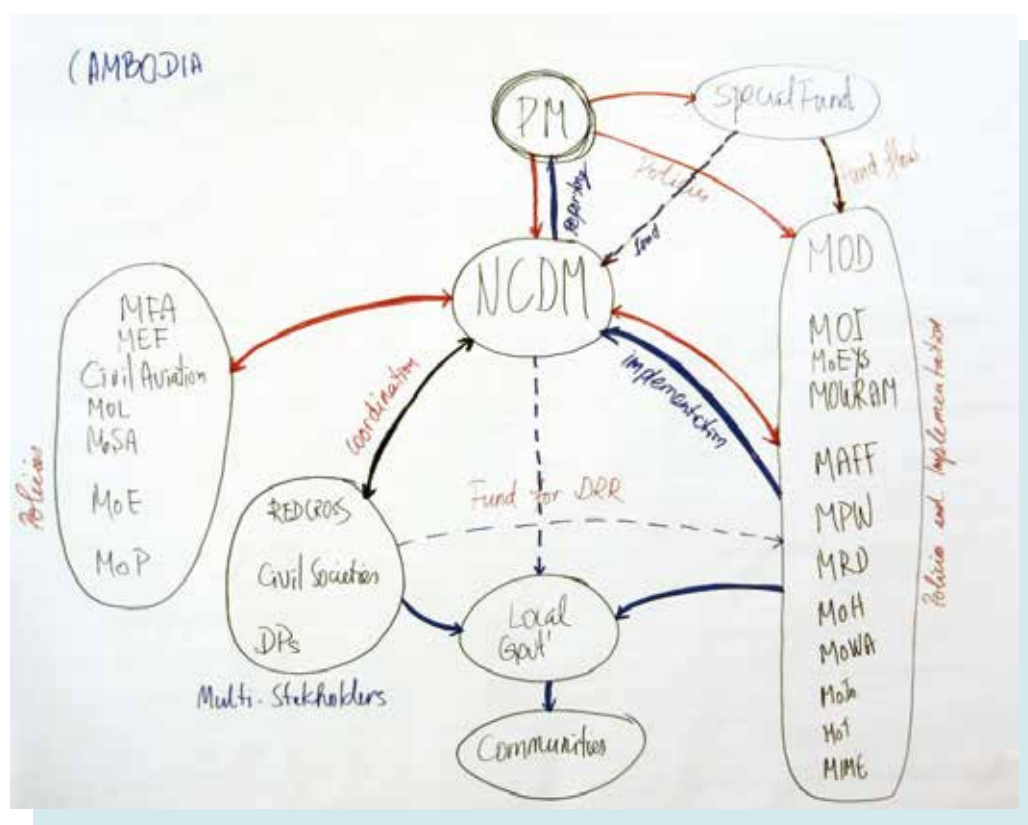 CAMBODIA
PM
Special Fund
Policies
Fund flow
Reporting
Fund
NCDM
MFA
MEF
Civil Aviation
MOL
MoSA
MoE
MoP
Policies
Coordination
Implementation
MOD
MOI
MoEYS
MOWRAM
MAFF
MPW
MRD
MoH
MoWA
MoJo
MoT
MIME
Policies and implementation
REDCROSS
Civil Societies
DPs
Multi-Stakeholders
Fund for DRR
Local
Gov't
Communities